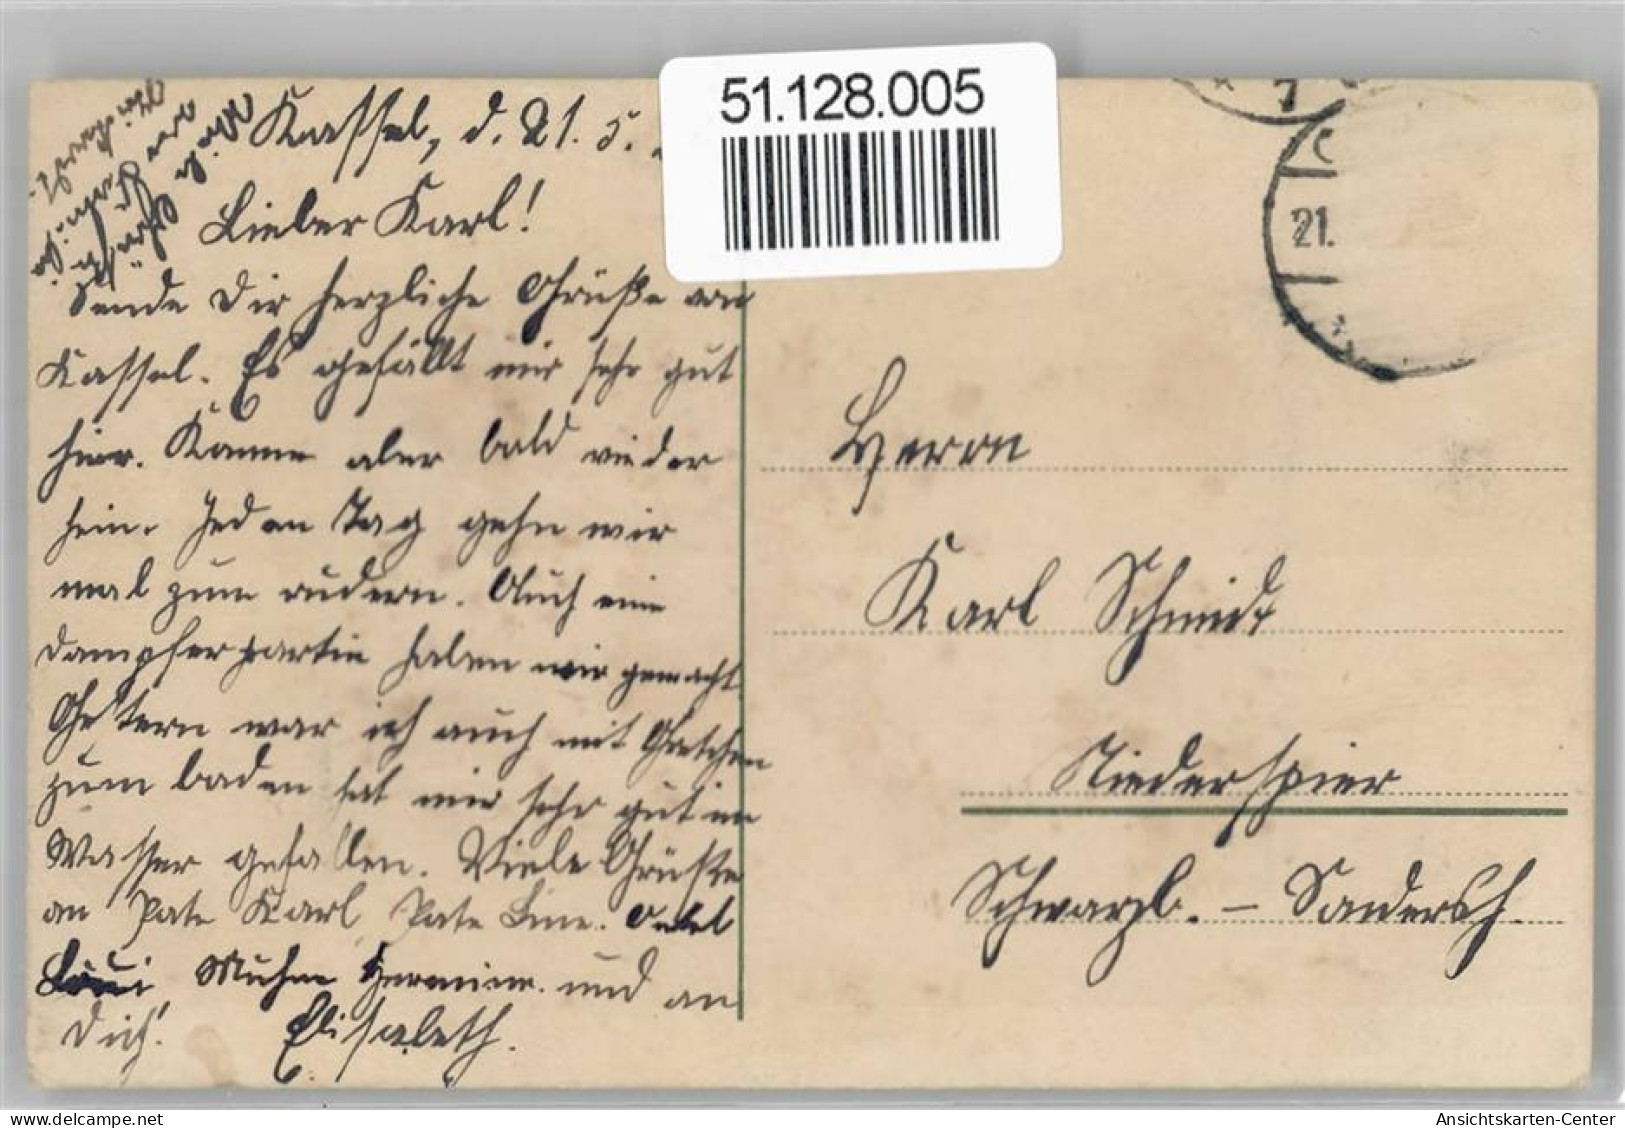 51.128.005
Kassel, d. 21. 5.
Lieber Karl!
Sende Dir herzliche Grüße von
Kassel. Es gefällt mir sehr gut
hier. Komme aber bald wieder
heim. Jeden Tag gehn wir
mal zum rudern. Auch eine
Dampferpartie haben wir gemacht
Gestern war ich auch mit Gretchen
zum baden hat mir sehr gut im
Wasser gefallen. Viele Grüße
an Pate Karl, Pate Line. Onkel
Loui Muhme Hermine. und an
Dich! Elisabeth.
21.
Herrn
Karl Schmidt
Niederspier
Schwarzb. – Sondersh.
Ansichtskarten-Center